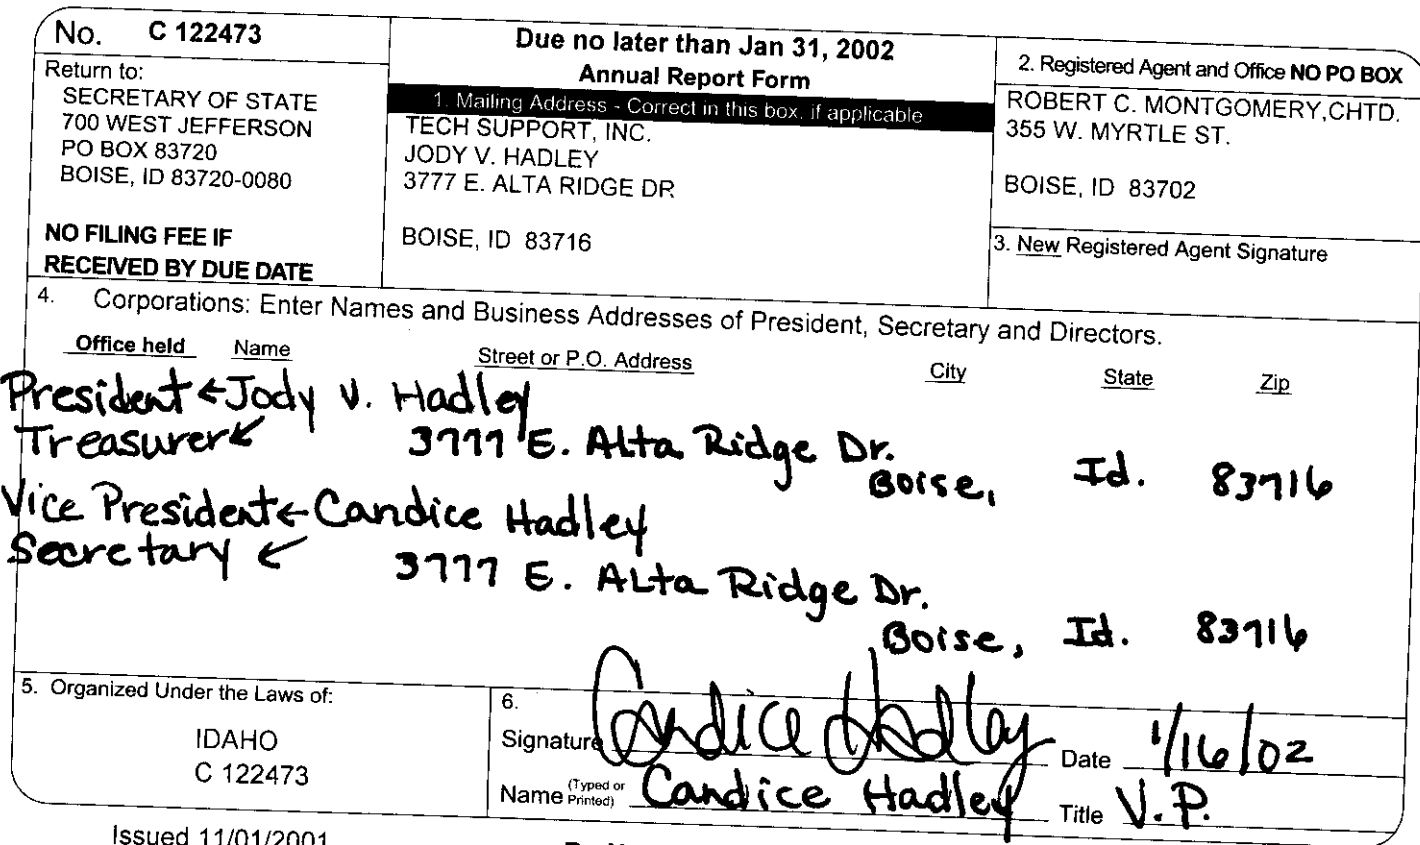 No. C 122473
Return to:
SECRETARY OF STATE
700 WEST JEFFERSON
PO BOX 83720
BOISE, ID 83720-0080
NO FILING FEE IF
RECEIVED BY DUE DATE
Due no later than Jan 31, 2002
Annual Report Form
1. Mailing Address - Correct in this box, if applicable
TECH SUPPORT, INC.
JODY V. HADLEY
3777 E. ALTA RIDGE DR
BOISE, ID 83716
2. Registered Agent and Office NO PO BOX
ROBERT C. MONTGOMERY,CHTD.
355 W. MYRTLE ST.
BOISE, ID 83702
3. New Registered Agent Signature
4. Corporations: Enter Names and Business Addresses of President, Secretary and Directors.
Office held Name Street or P.O. Address City State Zip
President ← Jody V. Hadley
Treasurer ↙ 3777 E. Alta Ridge Dr.
Boise, Id. 83716
Vice President ← Candice Hadley
Secretary ↙ 3777 E. Alta Ridge Dr.
Boise, Id. 83716
5. Organized Under the Laws of:
IDAHO
C 122473
6.
Signature Candice Hadley Date 1/16/02
Name (Typed or Printed) Candice Hadley Title V.P.
Issued 11/01/2001